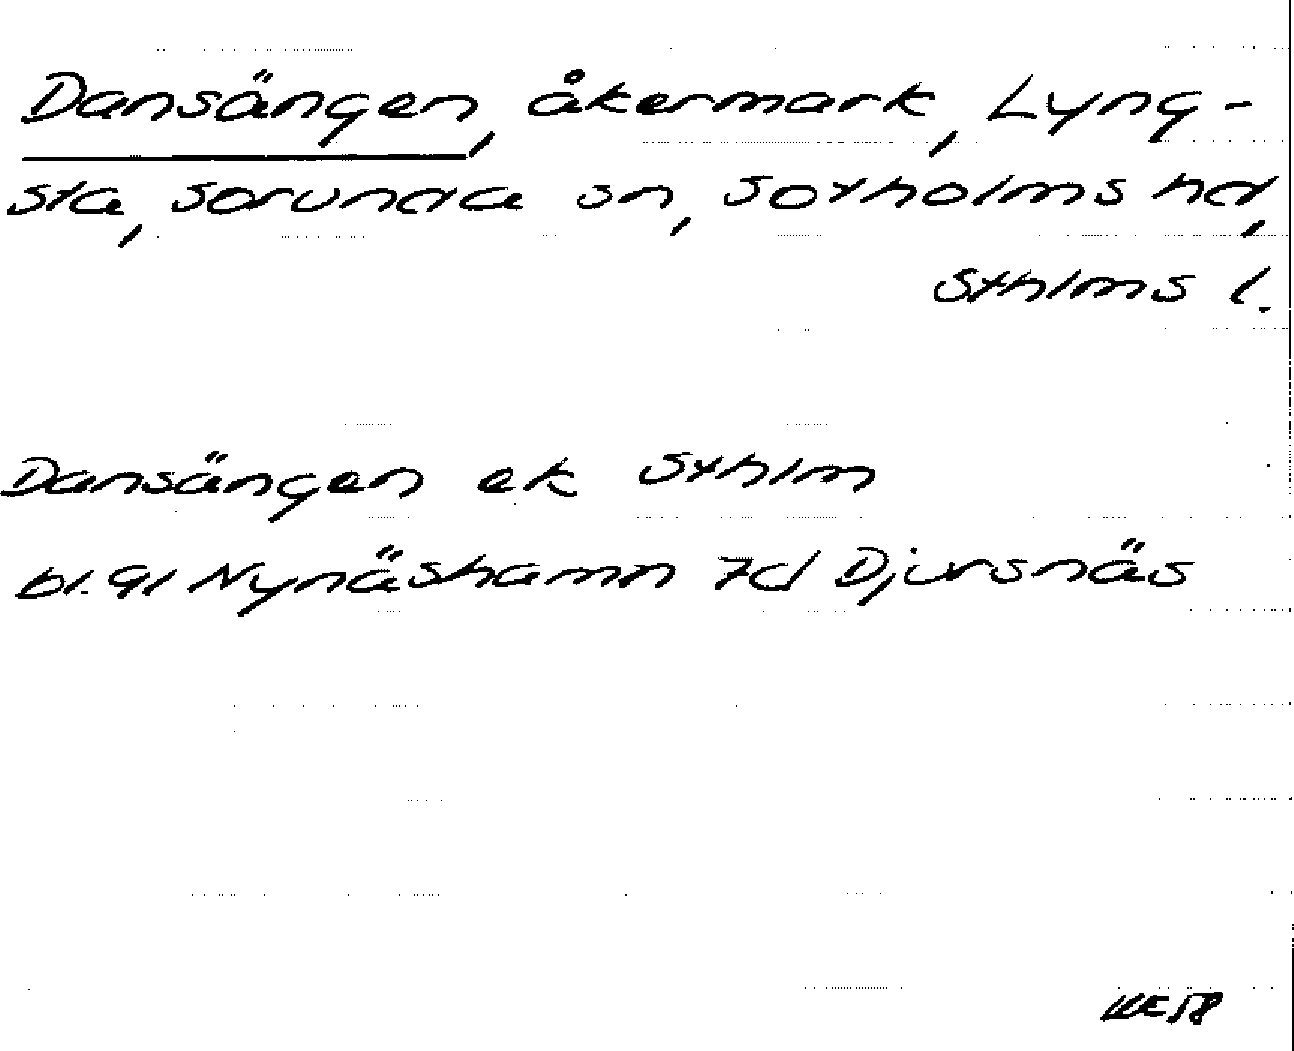 Dansängen, åkermark, Lyng-
sta, Sorunda sn, Sotholms hd,
Sthlms l.
Dansängen ek Sthlm
bl. 91 Nynäshamn 7d Djursnäs